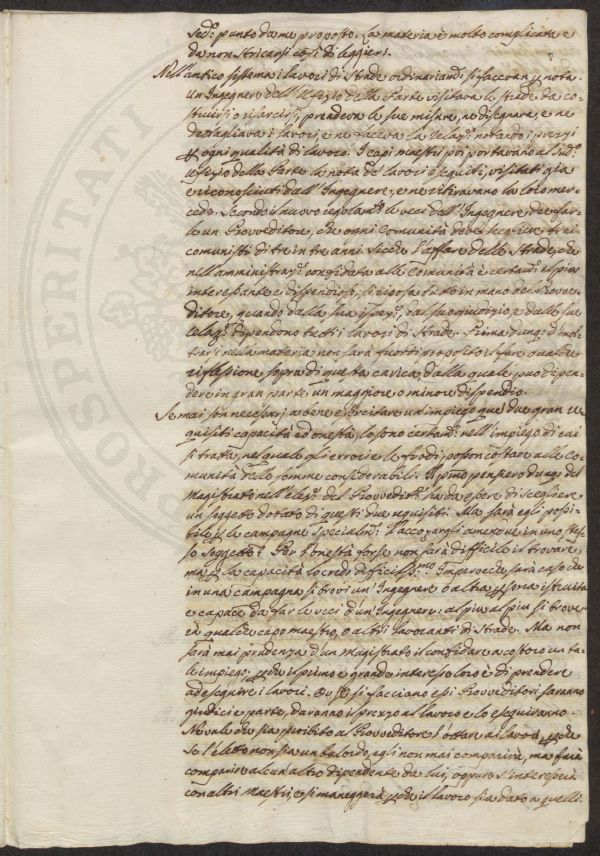 Sed.º punto da me proposto. La materia è molto complicata e
da non stricarsi così di leggieri.
Nell'antico sistema i lavori di Strade ordinariam.e si facevan p nota.
un Ingegnere dell'Ufizio della Parte visitava le strade da co-
struirsi o risarcirsi, prendeva le sue misure, ne disegnava, e ne
dettagliava i lavori, e ne faceva la Relaz.e notando i prezzi
p ogni qualità di lavoro. I capi maestri poi portavano al Sud.º
ufizio della Parte la nota de' lavori eseguiti, visitati già
e riconosciuti dall'Ingegnere, e ne ritiravano la loro mer-
cede. Secondo il nuovo regolam.to le veci dell'Ingegnere dee far-
le un Provveditore, che ogni Comunità deve scegliere tra i
comunisti di tre in tre anni. Siccè l'affare delle Strade, che
nell'amministraz.e confidata alle Comunità è certam.e il più
interessante e dispendioso, si riposa tutto in mano del Provve-
ditore, quando dalla sua ispez.e, dal suo giudizio, e dalle sue
Relaz.i dipendono tutti i lavori di Strade. Prima dunq. d'inol-
trarsi nella materia non sarà fuor di proposito il fare qualche
riflessione sopra di questa carica, dalla quale può dipen-
dere in gran parte un maggiore o minore dispendio.
Se mai son necessarj a bene esercitare un impiego que' due gran re-
quisiti capacità ed onestà, lo sono certam.e nell'impiego di cui
si tratta, nel quale gli errori e le frodi posson costare alle Co-
munità delle somme considerabili. Il pmo pensiero dunq. del
Magistrato nell'elez.e del Provvedit.e ha da essere di scegliere
un soggetto dotato di questi due requisiti. Ma sarà egli possi-
bile p le campagne specialm.e l'accozzargli amendue in uno stes-
so soggetto? Per l'onestà forse non sarà difficile il trovare,
ma p la capacità lo credo difficiliss.mo Imperocchè sarà caso che
in una campagna si trovi un Ingegnere o altra psona istruita
e capace da far le veci d'un Ingegnere: al più al più si trove-
rà qualche capo maestro, o altri lavoranti di Strade. Ma non
sarà mai prudenza d'un Magistrato il confidare a costoro un ta-
le impiego; pchè il primo e grande interesse loro è di prendere
ad eseguire i lavori. Or se si facciano essi Provveditori saranno
giudici e parte, daranno il prezzo al lavoro e lo eseguiranno.
Nè vale che sia proibito al Provveditore l'ottare ai lavori, pchè
se l'eletto non sia un balordo, egli non mai comparirà, ma farà
comparire alcun altro dipendente da lui, oppure s'interesserà
con altri Maestri, e si maneggerà pchè il lavoro sia dato a quelli.
PROSPERITATI